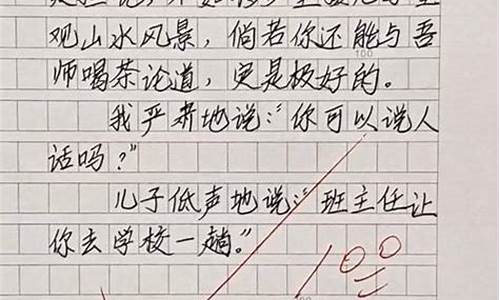 观山水风景，倘若你还能与吾
师喝茶论道，更是极好的。
我严肃地说：“你可以说人
话吗？”
儿子低声地说：“班主任让
你去学校一趟。”
100
100